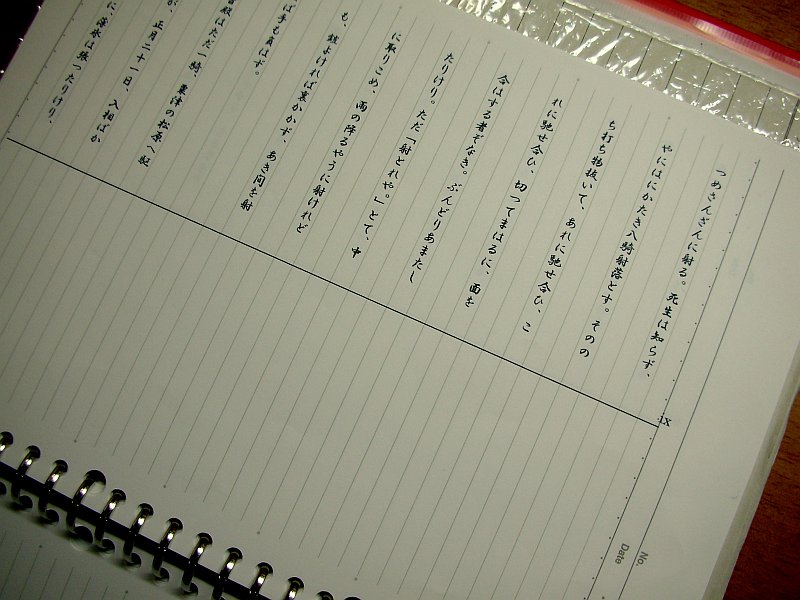 つめさんざんに射る。死生は知らず、
やにはにかたき八騎射落とす。そのの
ち打ち物抜いて、あれに馳せ合ひ、こ
れに馳せ合ひ、切つてまはるに、面を
合はする者ぞなき。ぶんどりあまたし
たりけり。ただ「射とれや。」とて、中
に取りこめ、雨の降るやうに射けれど
も、鎧よければ裏かかず、あき間を射
ば手も負はず。
殿はただ一騎、粟津の松原へ駆
が、正月二十一日、入相ばか
に、薄氷は張つたりけり、
No.
Date